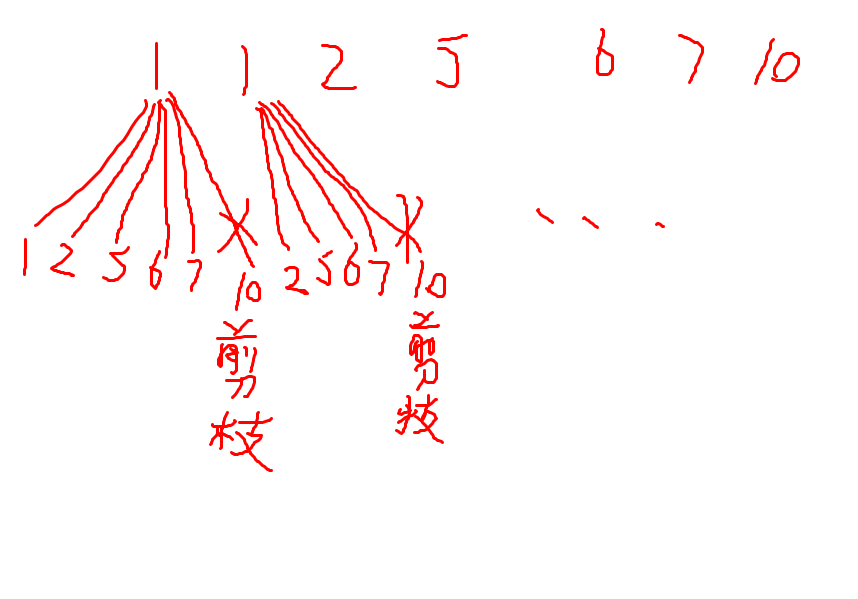 1 1 2 5 6 7 10
1 2 5 6 7 10 2 5 6 7 10
剪枝 剪枝